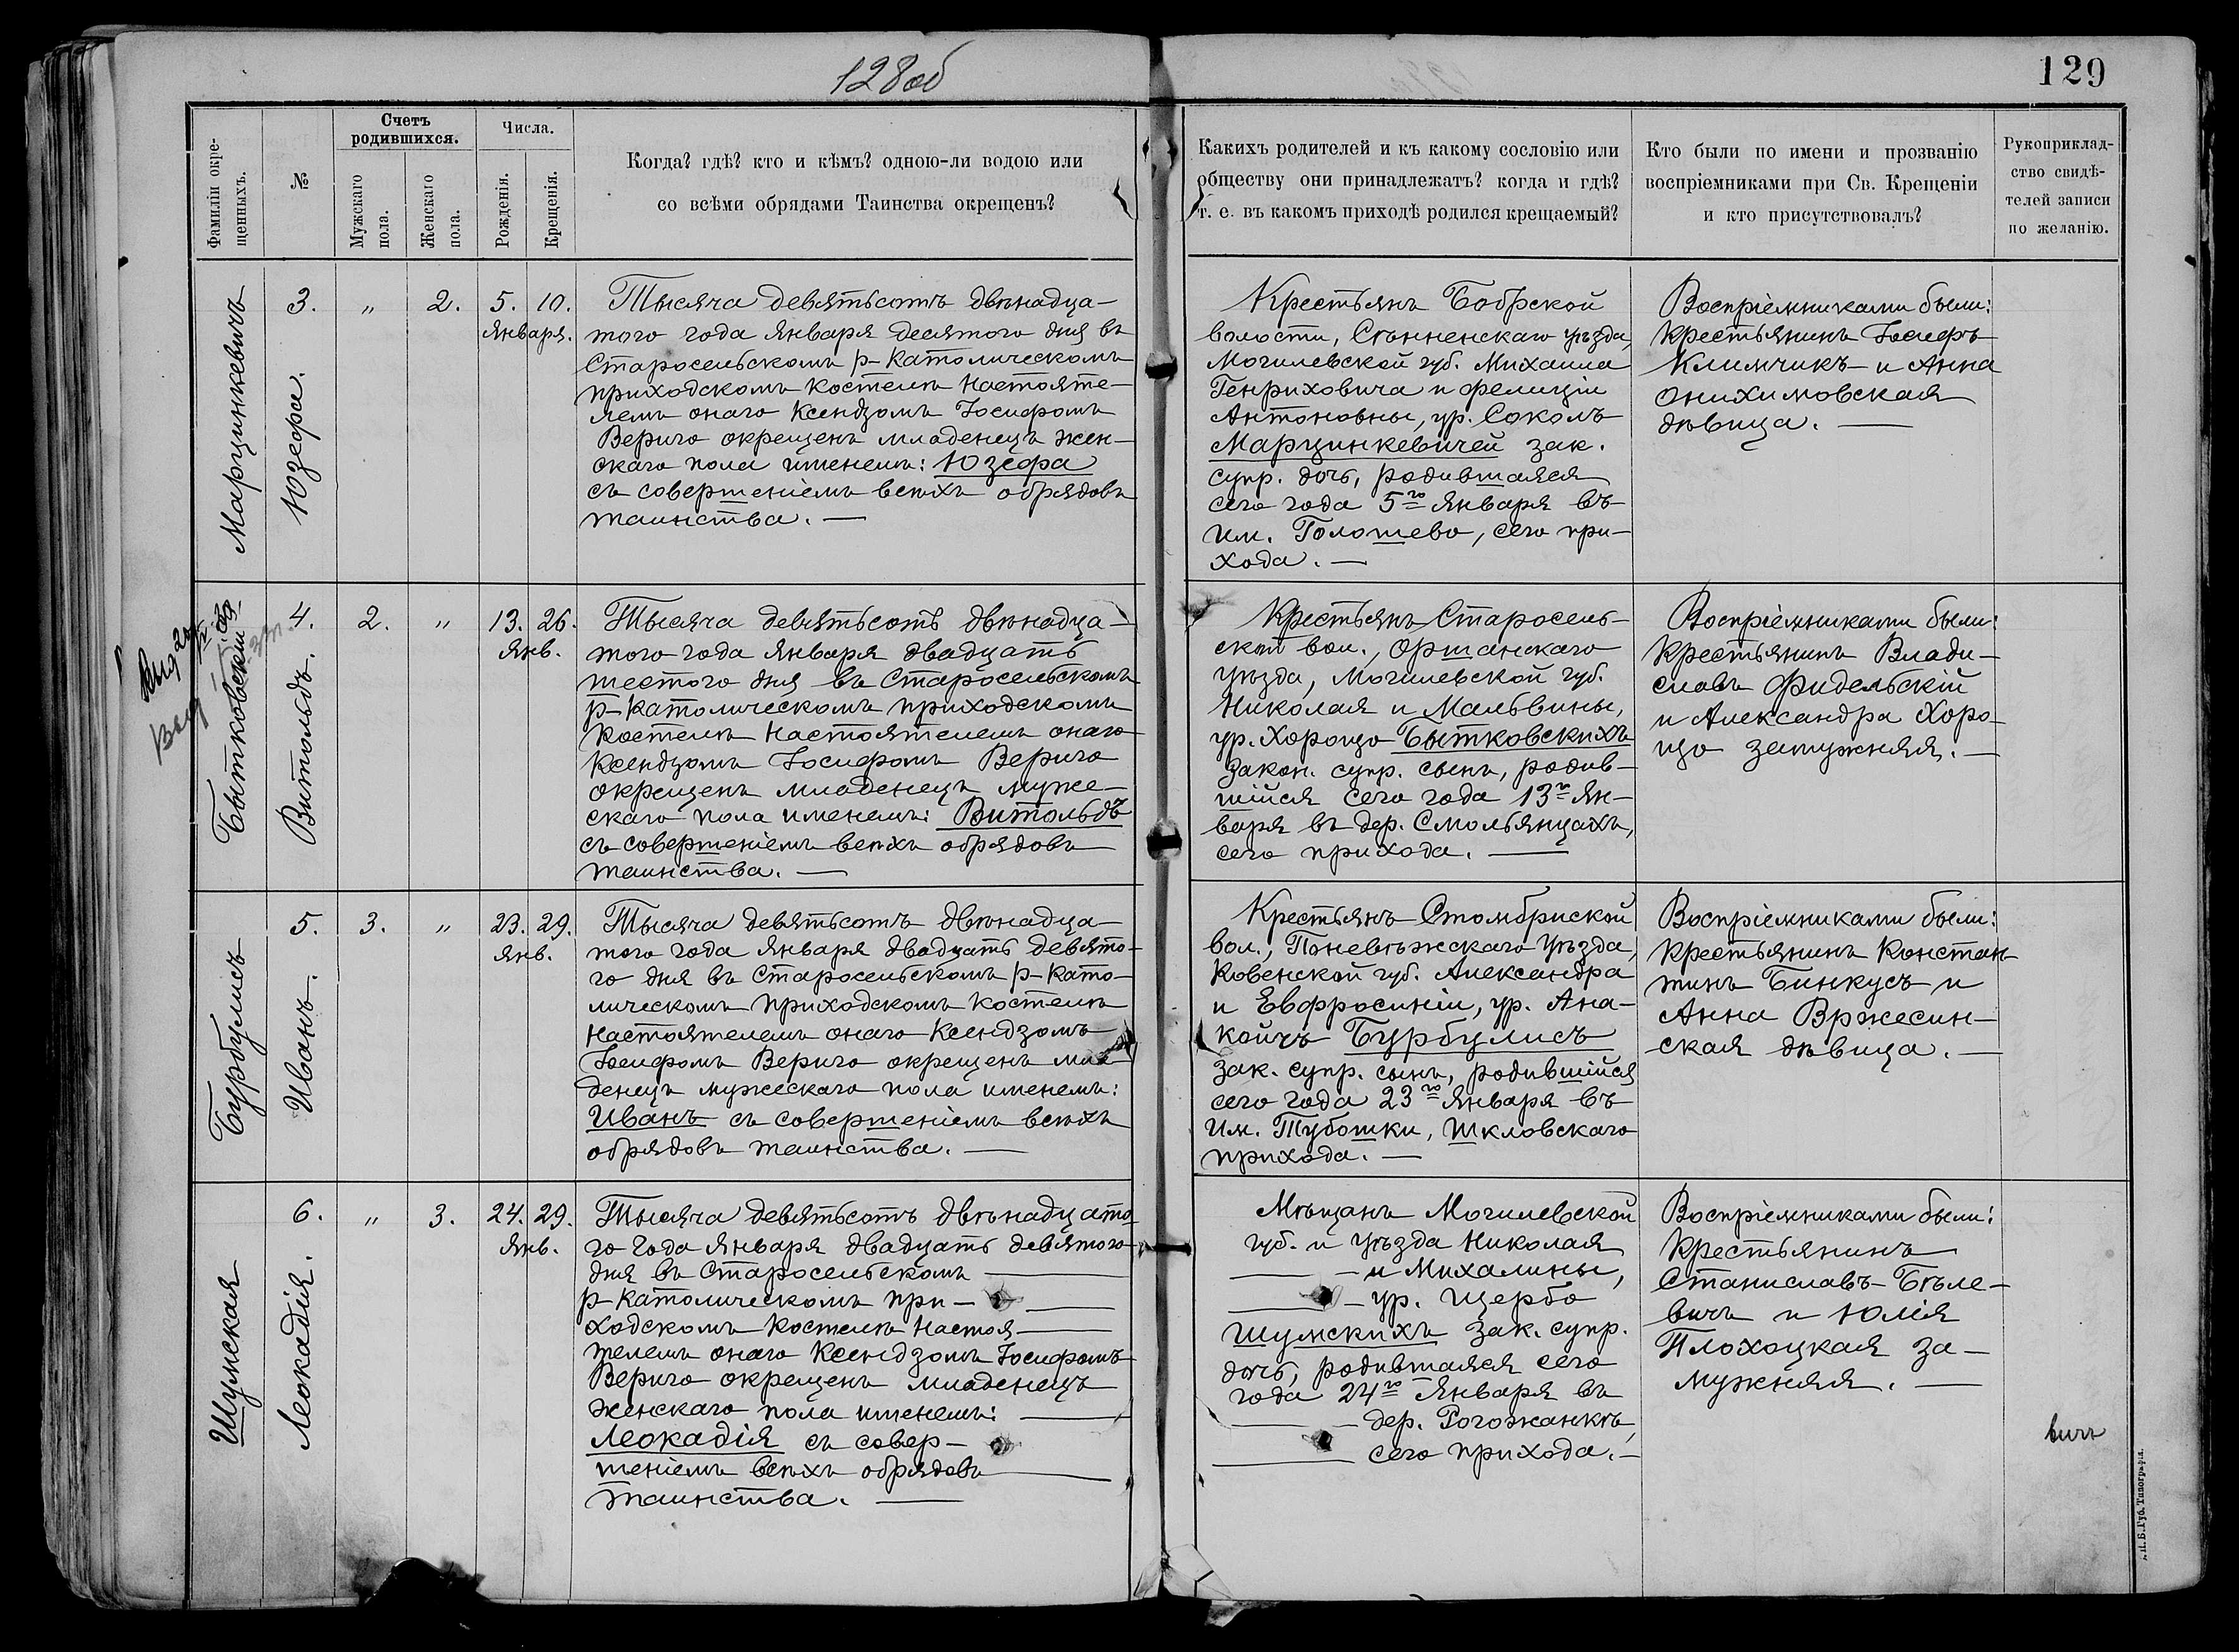 128об
129
Фамиліи окрещенныхъ.
№
Счетъ родившихся.
Мужскаго пола.
Женскаго пола.
Числа.
Рожденія.
Крещенія.
Когда? гдѣ? кто и кѣмъ? одною-ли водою или
со всѣми обрядами Таинства окрещенъ?
Какихъ родителей и къ какому сословію или
обществу они принадлежатъ? когда и гдѣ?
т. е. въ какомъ приходѣ родился крещаемый?
Кто были по имени и прозванію
воспріемниками при Св. Крещеніи
и кто присутствовалъ?
Рукоприклад-
ство свидѣ-
телей записи
по желанію.
Марцинкевичъ
3.
Юзефа.
"
2.
5. 10.
Января.
Тысяча девятьсотъ двѣнадца-
того года Января десятого дня въ
Старосельскомъ р-католическомъ
приходскомъ костелѣ Настояте-
лемъ онаго Ксендзомъ Іосифомъ
Верыго окрещенъ младенецъ жен-
скаго пола именемъ: Юзефа
съ совершеніемъ всѣхъ обрядовъ
таинства. —
Крестьянъ Бобрской
волости, Сѣнненскаго уѣзда,
Могилевской губ. Михаила
Генриховича и Фелиціи
Антоновны, ур. Соколъ
Марцинкевичей зак.
супр. дочь, родившаяся
сего года 5го Января въ
им. Голошево, сего при-
хода. —
Воспріемниками были:
Крестьянинъ Іосифъ
Климчикъ и Анна
Онихимовская
дѣвица. —
Бытковскій
4.
Витольдъ.
2.
"
13. 26.
Янв.
Тысяча девятьсотъ двѣнадца-
того года Января двадцать
шестого дня въ Старосельскомъ
р-католическомъ приходскомъ
костелѣ Настоятелемъ онаго
Ксендзомъ Іосифомъ Верыго
окрещенъ младенецъ муже-
скаго пола именемъ: Витольдъ
съ совершеніемъ всѣхъ обрядовъ
таинства. —
Крестьянъ Старосель-
ской вол., Оршанскаго
уѣзда, Могилевской губ.
Николая и Мальвины,
ур. Хорощо Бытковскихъ
закон. супр. сынъ, родив-
шійся сего года 13го Ян-
варя въ дер. Смольянцахъ,
сего прихода. —
Воспріемниками были:
Крестьянинъ Влади-
славъ Фидельскій
и Александра Хоро-
що замужняя. —
Бурбулисъ
5.
Иванъ.
3.
"
23. 29.
Янв.
Тысяча девятьсотъ двѣнадца-
того года Января двадцать девято-
го дня въ Старосельскомъ р-като-
лическомъ приходскомъ костелѣ
Настоятелемъ онаго Ксендзомъ
Іосифомъ Верыго окрещенъ мла-
денецъ мужескаго пола именемъ:
Иванъ съ совершеніемъ всѣхъ
обрядовъ таинства. —
Крестьянъ Стомбриской
вол., Поневѣжскаго уѣзда,
Ковенской губ. Александра
и Евфросиніи, ур. Ана-
койчъ Бурбулисъ
зак. супр. сынъ, родившійся
сего года 23го Января въ
им. Тубошки, Шкловскаго
прихода. —
Воспріемниками были:
Крестьянинъ Констан-
тинъ Бинкусъ и
Анна Вржесин-
ская дѣвица. —
Шумская
6.
Леокадія.
"
3.
24. 29.
Янв.
Тысяча девятьсотъ двѣнадцато-
го года Января двадцать девятого
дня въ Старосельскомъ —
р-католическомъ при-
ходскомъ костелѣ Настоя-
телемъ онаго Ксендзомъ Іосифомъ
Верыго окрещенъ младенецъ
женскаго пола именемъ: —
Леокадія съ совер-
шеніемъ всѣхъ обрядовъ —
таинства. —
Мѣщанъ Могилевской
губ. и уѣзда Николая
— и Михалины,
— ур. Щербо
Шумскихъ зак. супр.
дочь, родившаяся сего
года 24го Января въ
— дер. Рогожанкѣ,
— сего прихода. —
Воспріемниками были:
Крестьянинъ
Станиславъ Бѣле-
вичъ и Юлія
Плохоцкая за-
мужняя. —
вичъ
Губ. Типографія.